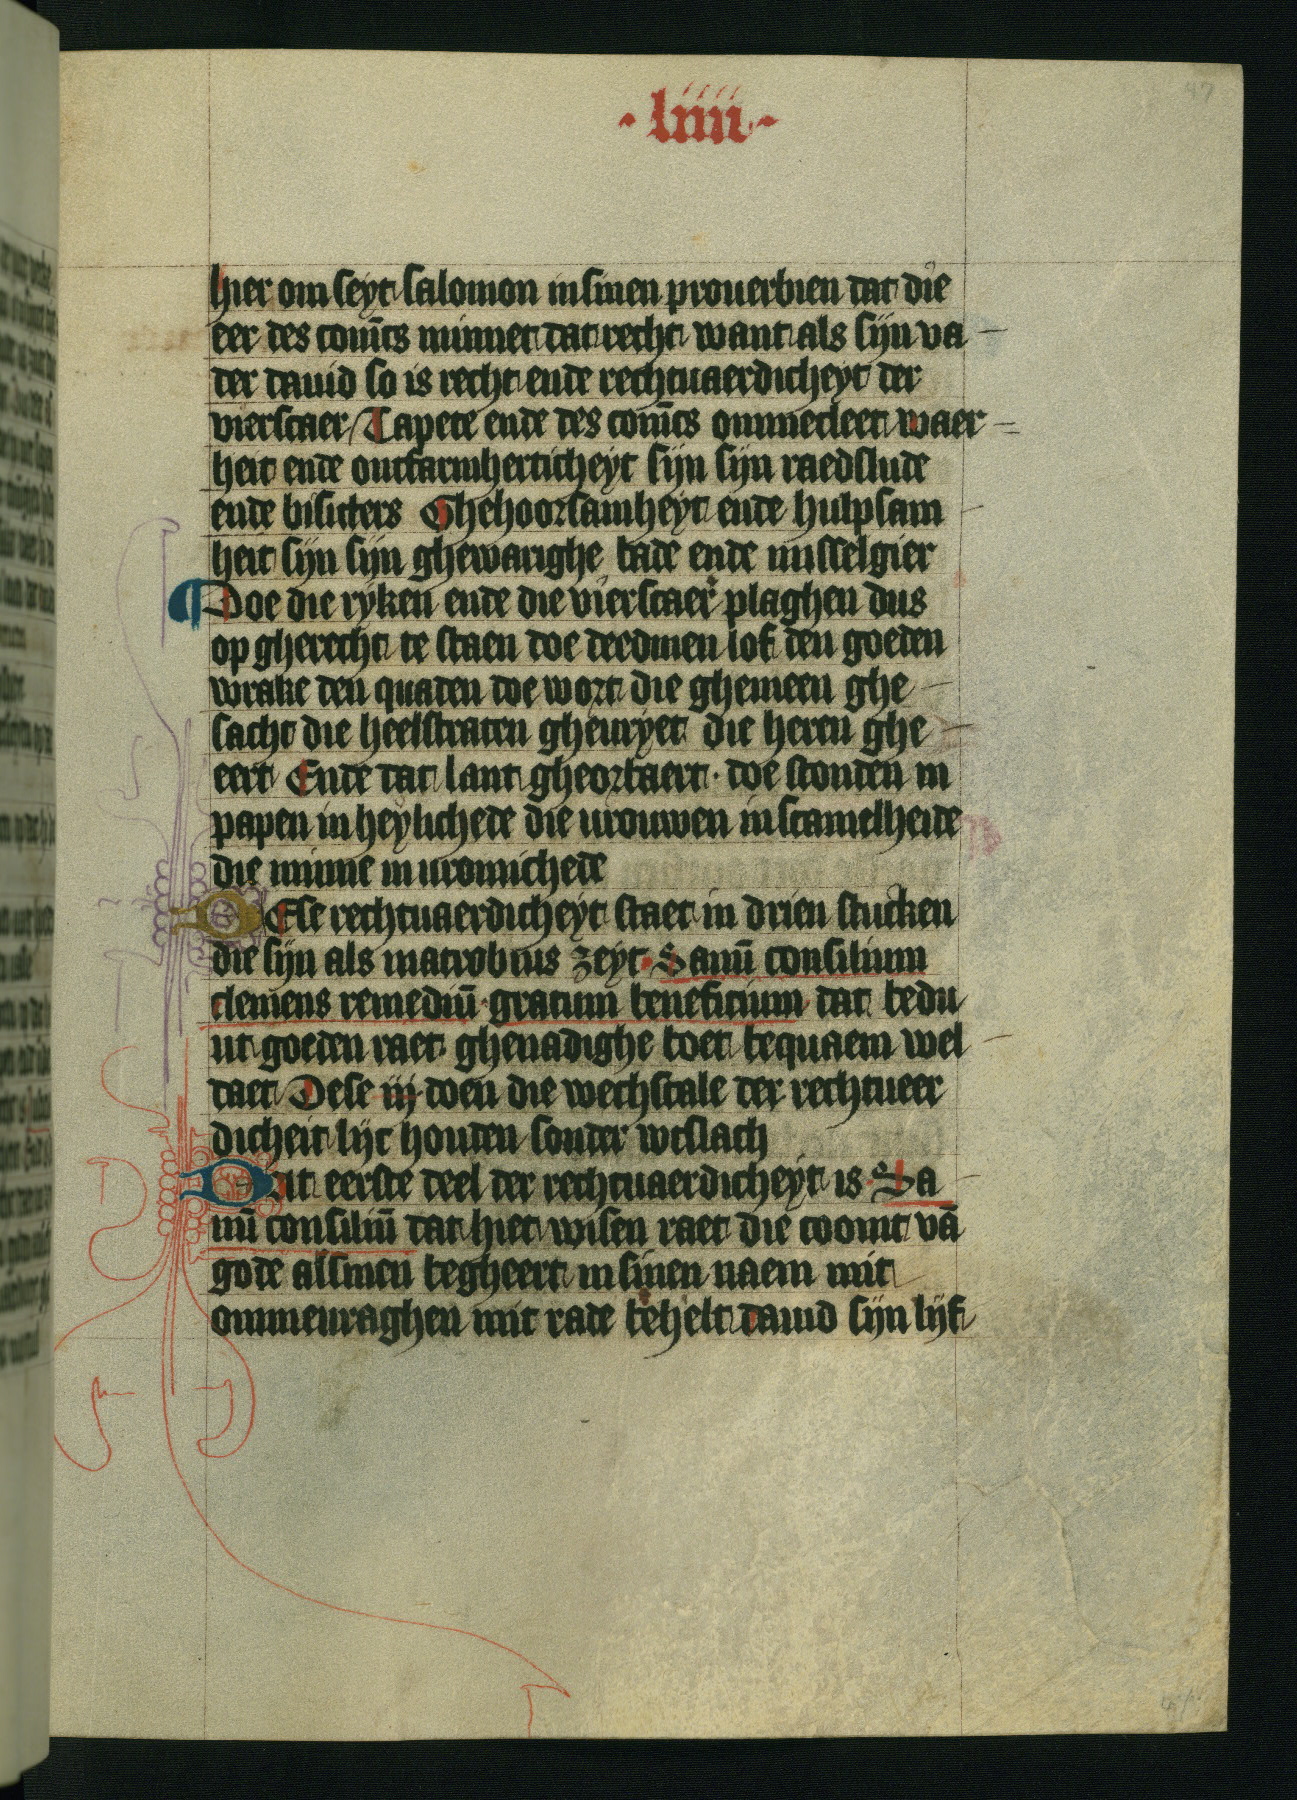 ·liiii·
hier om seyt salomon in sinen prouerbien dat die
eer des conīcs minnet dat recht want als sijn va
der dauid so is recht ende rechtuaerdicheyt der
vierscaer Tapete ende des conīcs ommecleet waer
heit ende ontfarmherticheyt sijn sijn raedslude
ende bisitters Ghehoorsamheyt ende hulpsam
heit sijn sijn ghewarighe bade ende misselgier
¶ Doe die ryken ende die vierscaer plaghen dus
op gherecht te staen doe deedmen lof den goeden
wrake den quaden doe wort die ghemeen ghe
sacht die heelstraten gheuryet die heren ghe
eert Ende dat lant gheorbaert· doe stonden in
papen in heylichede die vrouwen in scamelheide
die minne in vromichede
DEse rechtuaerdicheyt staet in drien stucken
die sijn als macrobius zeyt· Sanū consilium
clemens remediū· gratum beneficium dat bedu
ut goeden raet· ghenadighe boet bequaem wel
daet Dese iij doen die wechscale der rechtueer
dicheit lijc houden sonder wtslach
Dit eerste deel der rechtuaerdicheyt is· Sa
nū consiliū dat hiet wisen raet die coomt vā
gode alsmen begheert in sinen naem mit
ommeuraghen mit rade behelt dauid sijn lijf
47